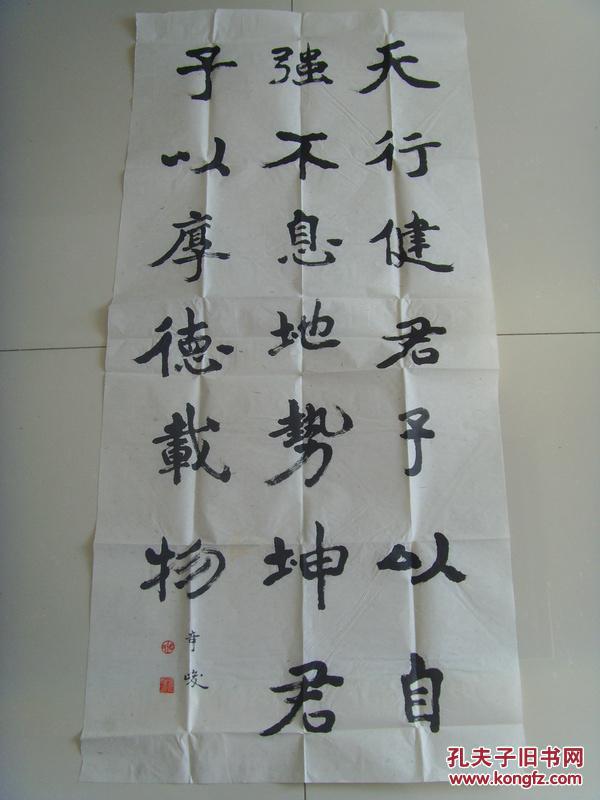 天行健君子以自
强不息地势坤君
子以厚德載物
孔夫子旧书网
www.kongfz.com